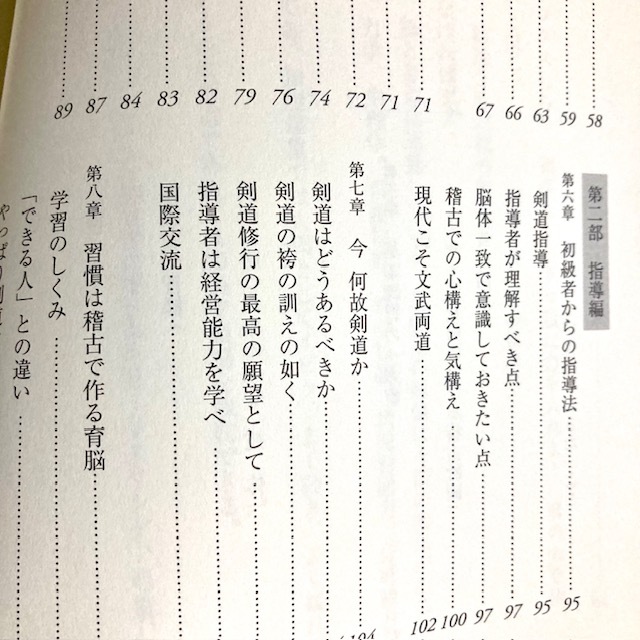 58
59
63
66
67
71
71
72
74
76
79
82
83
84
87
89
第二部 指導編
第六章 初級者からの指導法……95
剣道指導……95
指導者が理解すべき点……97
脳体一致で意識しておきたい点……97
稽古での心構えと気構え……100
現代こそ文武両道……102
第七章 今 何故剣道か……
剣道はどうあるべきか……
剣道の袴の訓えの如く……
剣道修行の最高の願望として……
指導者は経営能力を学べ……
国際交流……
第八章 習慣は稽古で作る育脳……
学習のしくみ……
「できる人」との違い……